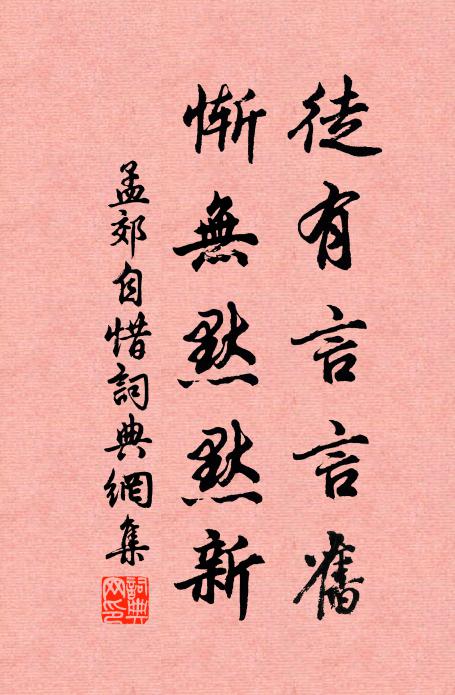 徒有言言舊
慚無默默新
孟郊自惜詞典網集
詞典網印